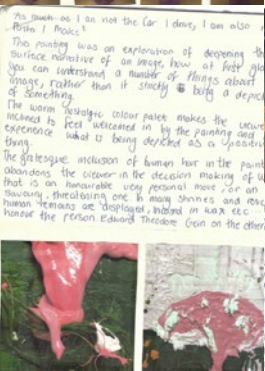 As much as I am not the Car I drive, I am also
Parts I Make?
This painting was an exploration of deepening the
surface narrative of an image, how at first gla
you can understand a number of things about
image, rather than it strictly being a depic
of something.
The warm nostalgic colour palet makes the viewe
inclined to feel welcomed in by the painting and
experience what is being depicted as a positiv
thing.
The grotesque inclusion of human hair in the paint
abandons the viewer in the decision making of
that is an honourable very personal move, or an
savoury, threatening one. In many shrines and
human remains are displayed, in wax etc
honour the person Edward Theodore Gein on the other